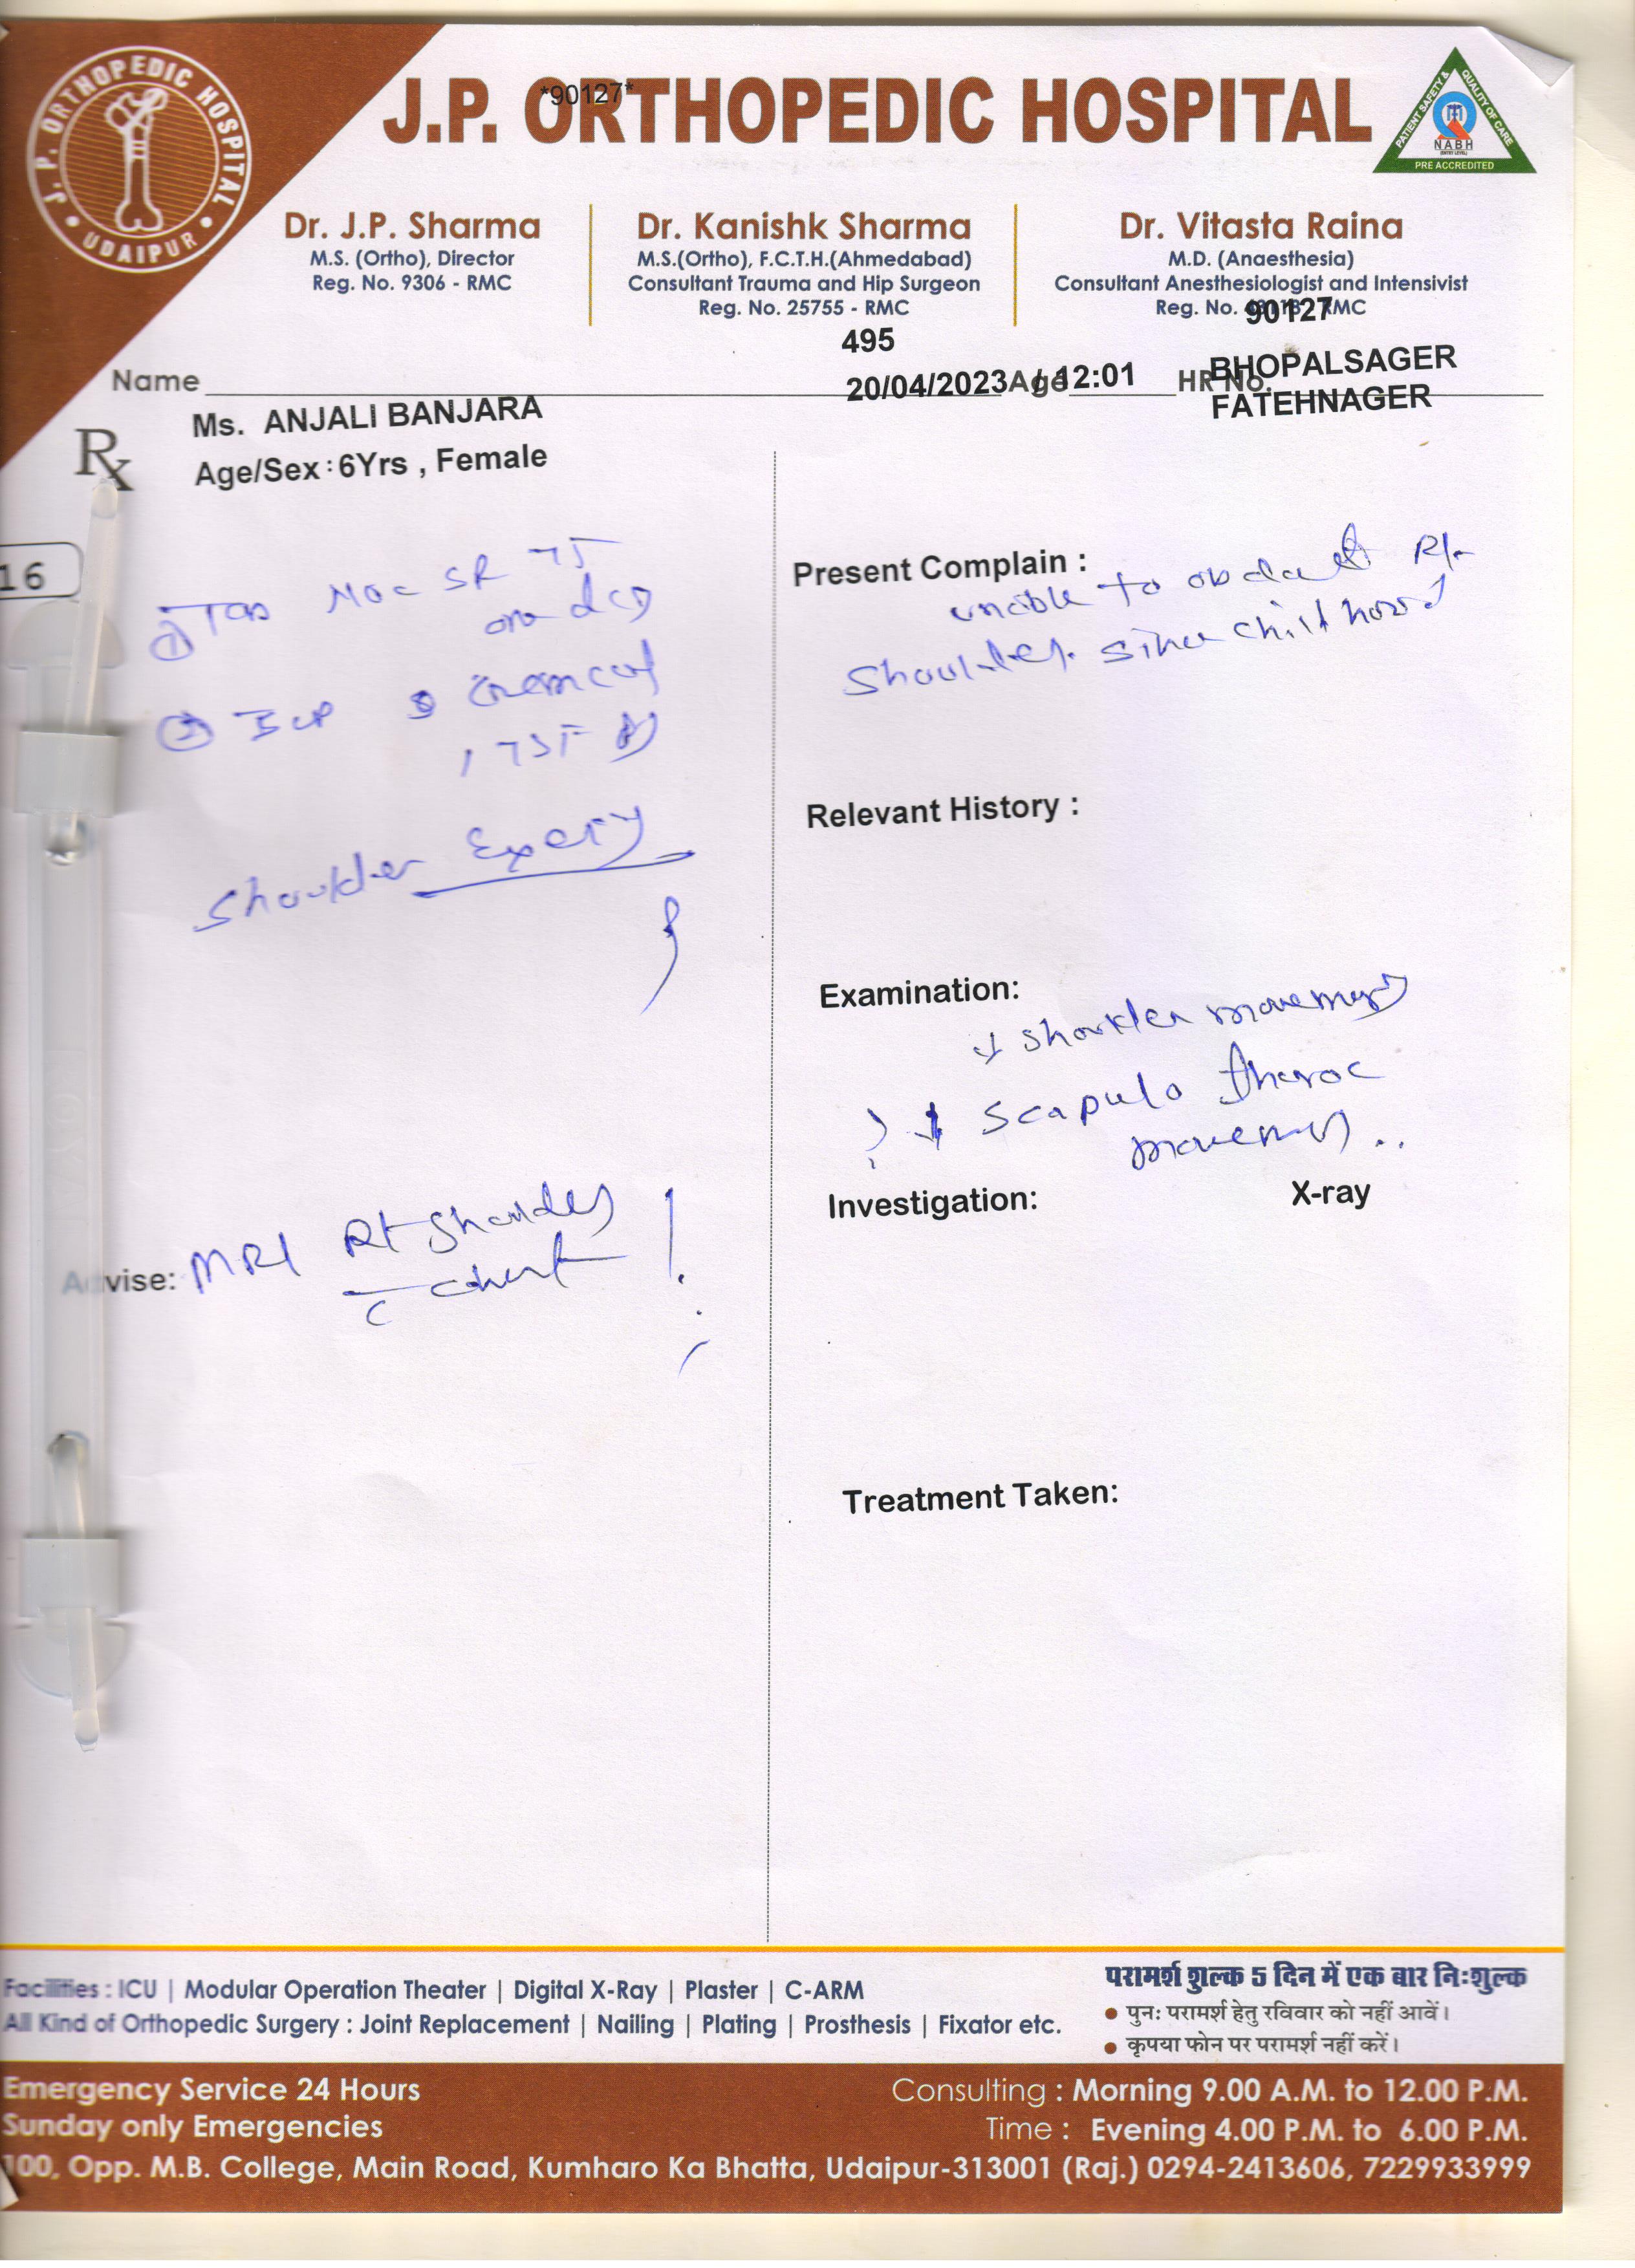 J. P. ORTHOPEDIC HOSPITAL
UDAIPUR
J.P. ORTHOPEDIC HOSPITAL
*90127*
PATIENT SAFETY & QUALITY OF CARE
NABH
PRE ACCREDITED
Dr. J.P. Sharma
M.S. (Ortho), Director
Reg. No. 9306 - RMC
Dr. Kanishk Sharma
M.S.(Ortho), F.C.T.H.(Ahmedabad)
Consultant Trauma and Hip Surgeon
Reg. No. 25755 - RMC
Dr. Vitasta Raina
M.D. (Anaesthesia)
Consultant Anesthesiologist and Intensivist
Reg. No. RMC
90127
495
Name 20/04/2023 Age / 12:01 HR No. BHOPALSAGER
FATEHNAGER
Ms. ANJALI BANJARA
Rx
Age/Sex : 6Yrs , Female
16
① Tab SR 75
②
Shoulder
Advise: MRI Rt Shoulder
Present Complain :
unable to Rt
Shoulder since childhood
Relevant History :
Examination:
↓ shoulder movement
? ↓ scapulo
movement ..
Investigation: X-ray
Treatment Taken:
Facilities : ICU | Modular Operation Theater | Digital X-Ray | Plaster | C-ARM
All Kind of Orthopedic Surgery : Joint Replacement | Nailing | Plating | Prosthesis | Fixator etc.
परामर्श शुल्क 5 दिन में एक बार निःशुल्क
• पुनः परामर्श हेतु रविवार को नहीं आवें।
• कृपया फोन पर परामर्श नहीं करें।
Emergency Service 24 Hours
Sunday only Emergencies
Consulting : Morning 9.00 A.M. to 12.00 P.M.
Time : Evening 4.00 P.M. to 6.00 P.M.
100, Opp. M.B. College, Main Road, Kumharo Ka Bhatta, Udaipur-313001 (Raj.) 0294-2413606, 7229933999